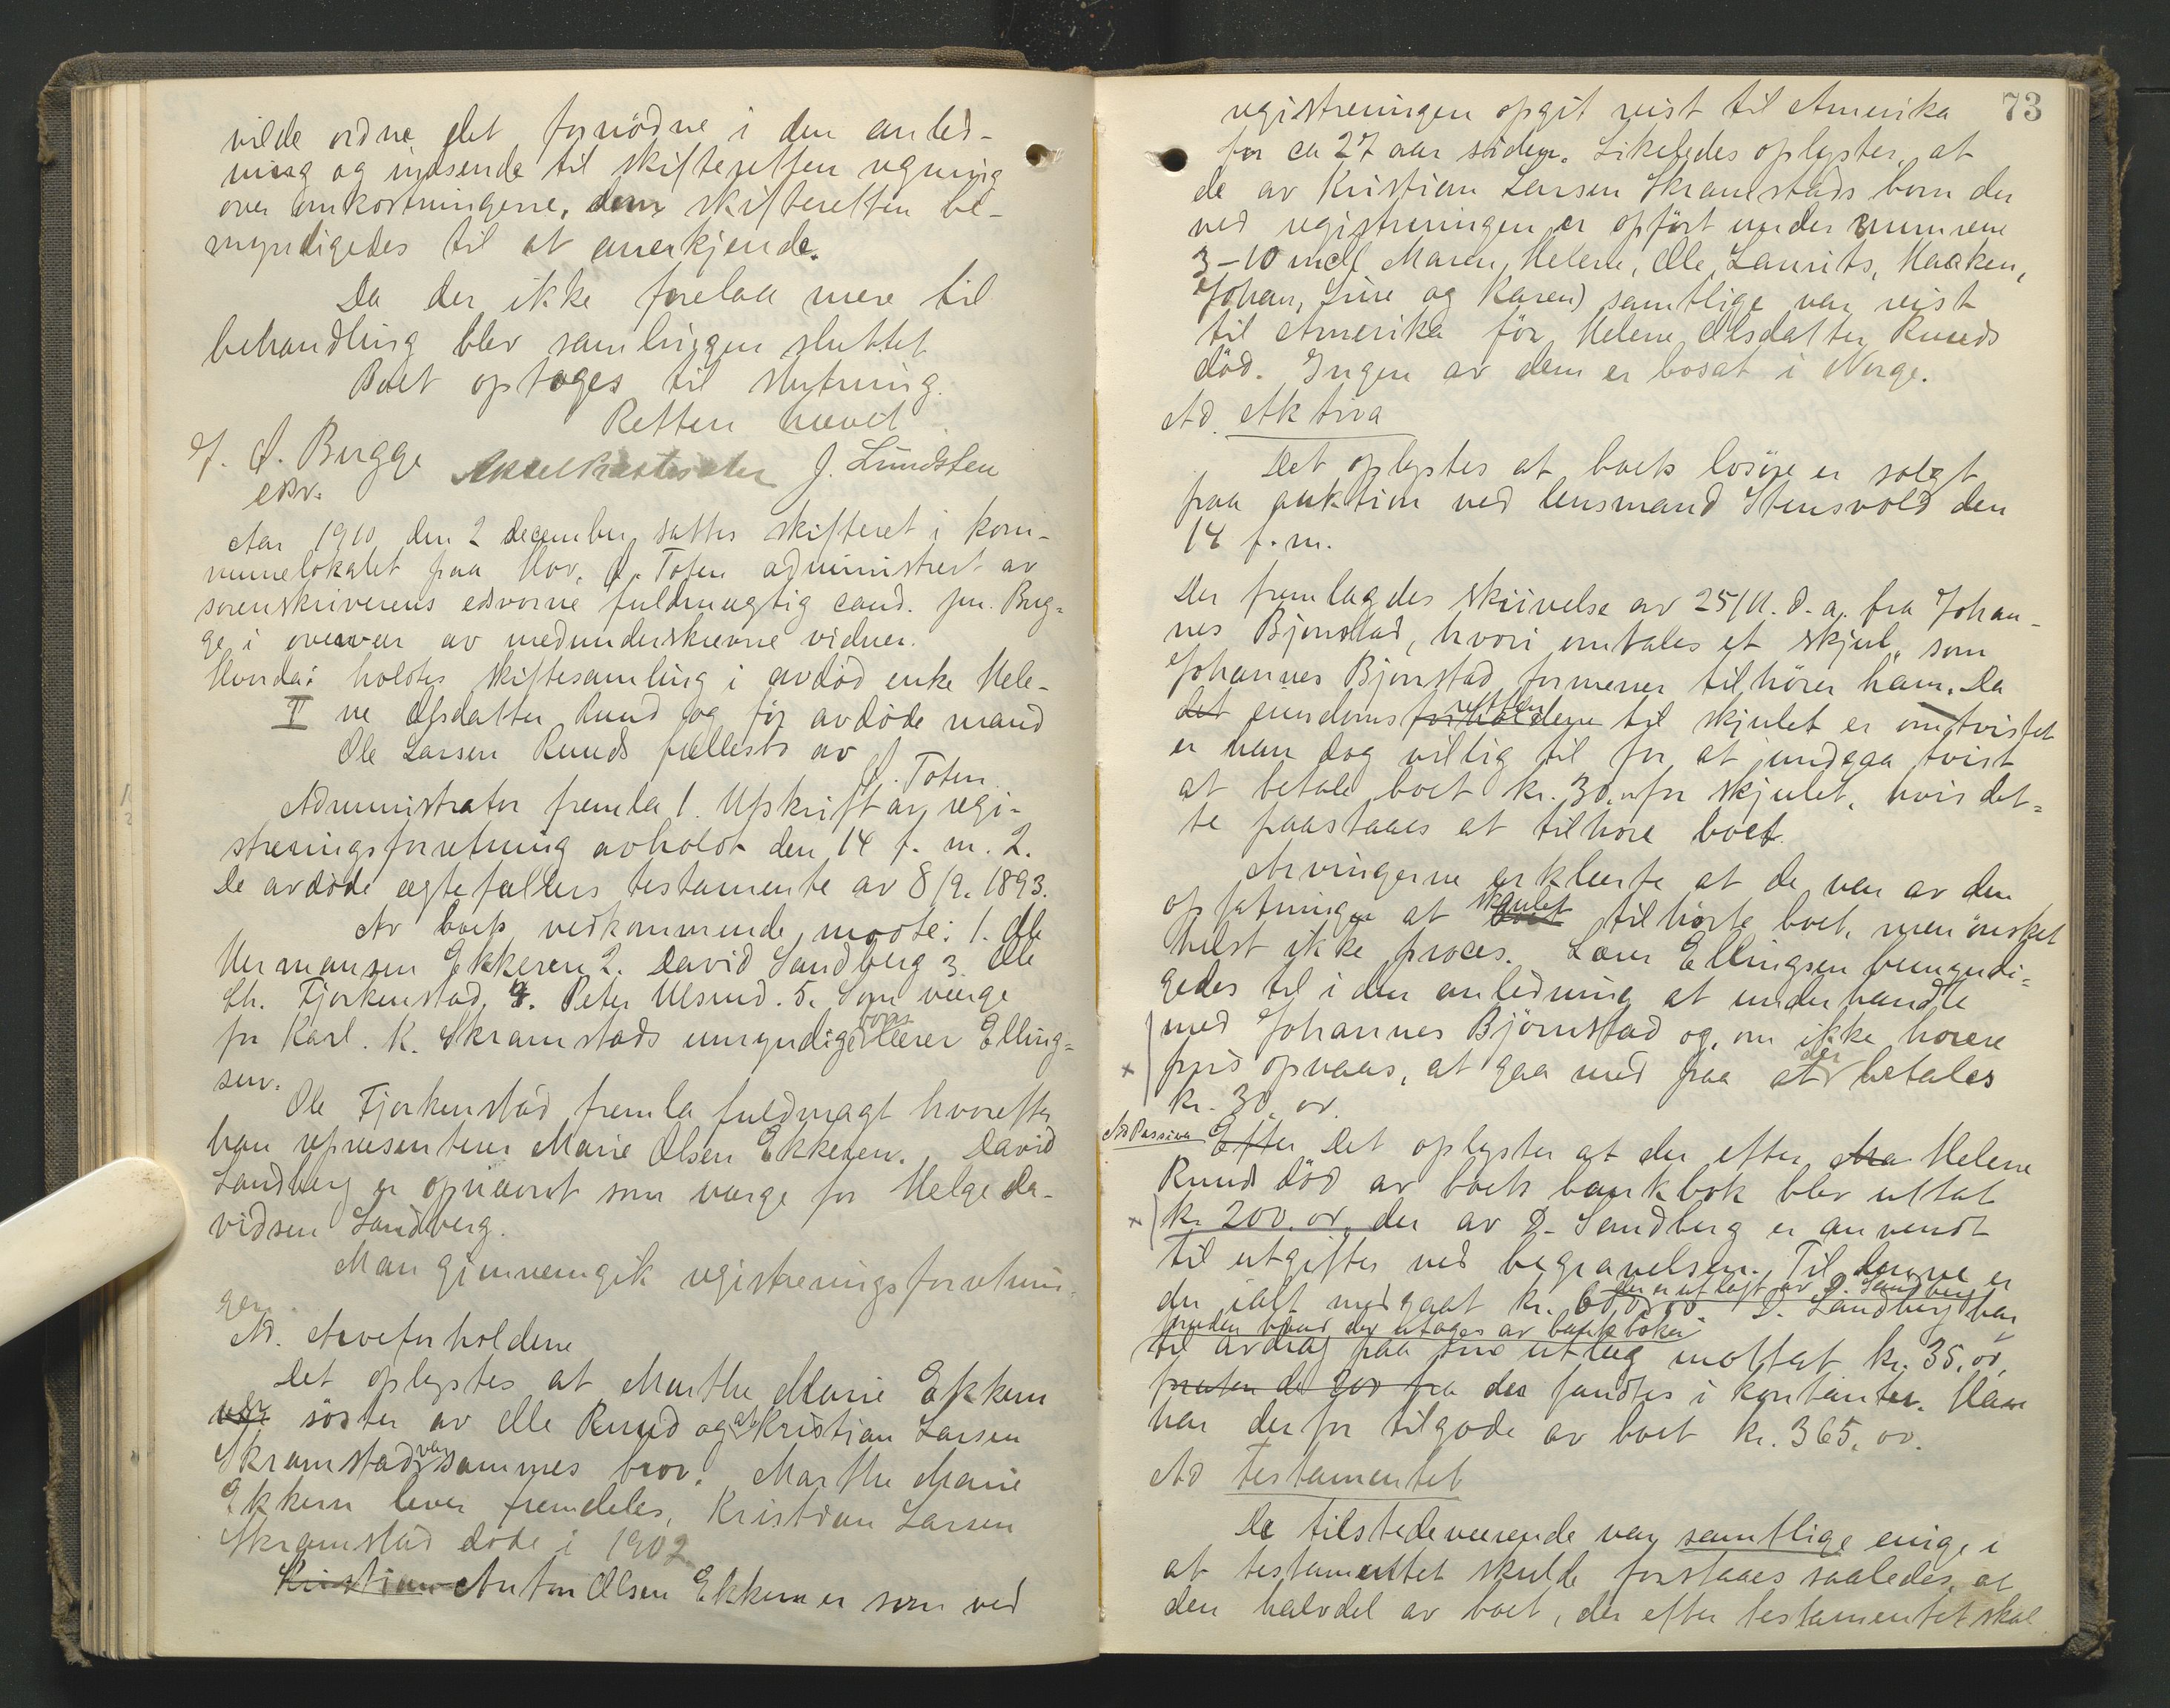 vilde ordne det fornödne i den anled-
ning og indsende til skifteretten regning
over omkostningerne, dem skifteretten be-
myndigedes til at anerkjende.
Da der ikke forelaa mere til
behandling blev samlingen sluttet
Boet optoges til slutning.
Retten hævet
J. Ø. Bugge J. Lundsten
edsv.
Aar 1910 den 2 december sattes skifteret i kom-
munelokalet paa Hov, Ø. Toten administrert av
sorenskriverens edsvorne fuldmægtig cand. jur. Bug-
ge i overvær av medunderskrevne vidner.
Hvorda: holdtes skiftesamling i avdöd enke Hele-
II ne Olsdatter Ruud og för avdöde mand
Ole Larsen Ruuds fællesbo av
Ø. Toten.
Administrator fremla 1. Utskrift av regi-
streringsforretning avholdt den 14 f. m. 2.
De avdöde ægtefællers testamente av 8/9. 1893.
Av boets vedkommende mødte: 1. Ole
Hermansen Ekkeren 2. David Sandberg 3. Ole
Ch. Fjorkenstad, 4. Peter Ulsrud. 5. Som værge
for Karl. K. Skramstads umyndige born Lærer Elling-
sen.
Ole Fjorkenstad fremla fuldmagt hvorefter
han repræsenterer Marie Olsen Ekkeren. David
Sandberg er opnævnt som værge for Helge Da-
vidsen Sandberg.
Man gjennemgik registreringsforretnin-
gen
Ad. Arveforholdene
Det oplystes at Marthe Marie Ekkern
var söster av Ole Ruud og at Kristian Larsen
Skramstad var sammes bror. Marthe Marie
Ekkern lever fremdeles, Kristian Larsen
Skramstad döde i 1902
Kristian Anton Olsen Ekkern er som ved
73
registreringen opgit reist til Amerika
for ca 27 aar siden. Likeledes oplystes, at
de av Kristian Larsen Skramstads born der
ved registreringen er opfört under numrene
3-10 incl Maren, Helene, Ole, Laurits, Haaken,
Johan, Line og Karen) samtlige var reist
til Amerika för Helene Olsdatter Ruuds
död. Ingen av dem er bosat i Norge.
Ad. Aktiva
Det oplystes at boets losöre er solgt
paa auktion ved lensmand Stensvold den
14 f. m.
Der fremlagdes skrivelse av 25/11. d. a. fra Johan-
nes Bjornstad, hvori omtales et skjul, som
Johannes Bjornstad formener tilhörer ham. Da
det eiendoms forholdene retten til skjulet er omtvistet
er han dog villig til for at undgaa tvist
at betale boet kr. 30.- for skjulet, hvis det-
te paastaaes at tilhøre boet.
Arvingerne erklærte at de var av den
opfatningen at boet skjulet tilhörte boet, men önsket
helst ikke proces. Lærer Ellingsen bemyndi-
gedes til i den anledning at underhandle
med Johannes Björnstad og, om ikke hoiere
x pris opnaaes, at gaa med paa at der betales
kr. 30. oo.
Ad Passiva Efter Det oplystes at der efter Helene
Ruuds död av boets bankbok blev uttat
x kr. 200. oo. der av D. Sandberg er anvendt
til utgifter ved begravelsen. Til denne er
der er utlagt av D. Sandberg
der ialt medgaat kr. D. Sandberg har
foruden hvad der utoges av bankboken
til avdrag paa sine utlæg mottat kr. 35. oo.
foruten de 200 fra der fandtes i kontanter. Han
har derfor tilgode av boet kr. 365, oo.
Ad Testamentet
De tilstedeværende var samtlige enige i
at testamentet skulde forstaaes saaledes, at
den halvdel av boet, der efter testamentet skal